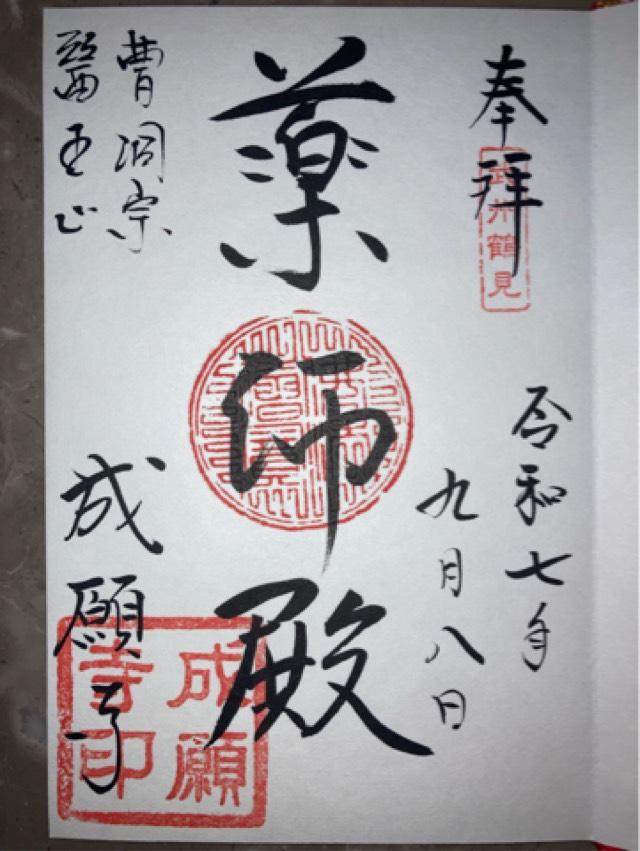 奉拝
武州鶴見
令和七年
九月八日
薬師殿
曹洞宗
醫王山
成願寺
成願
寺印